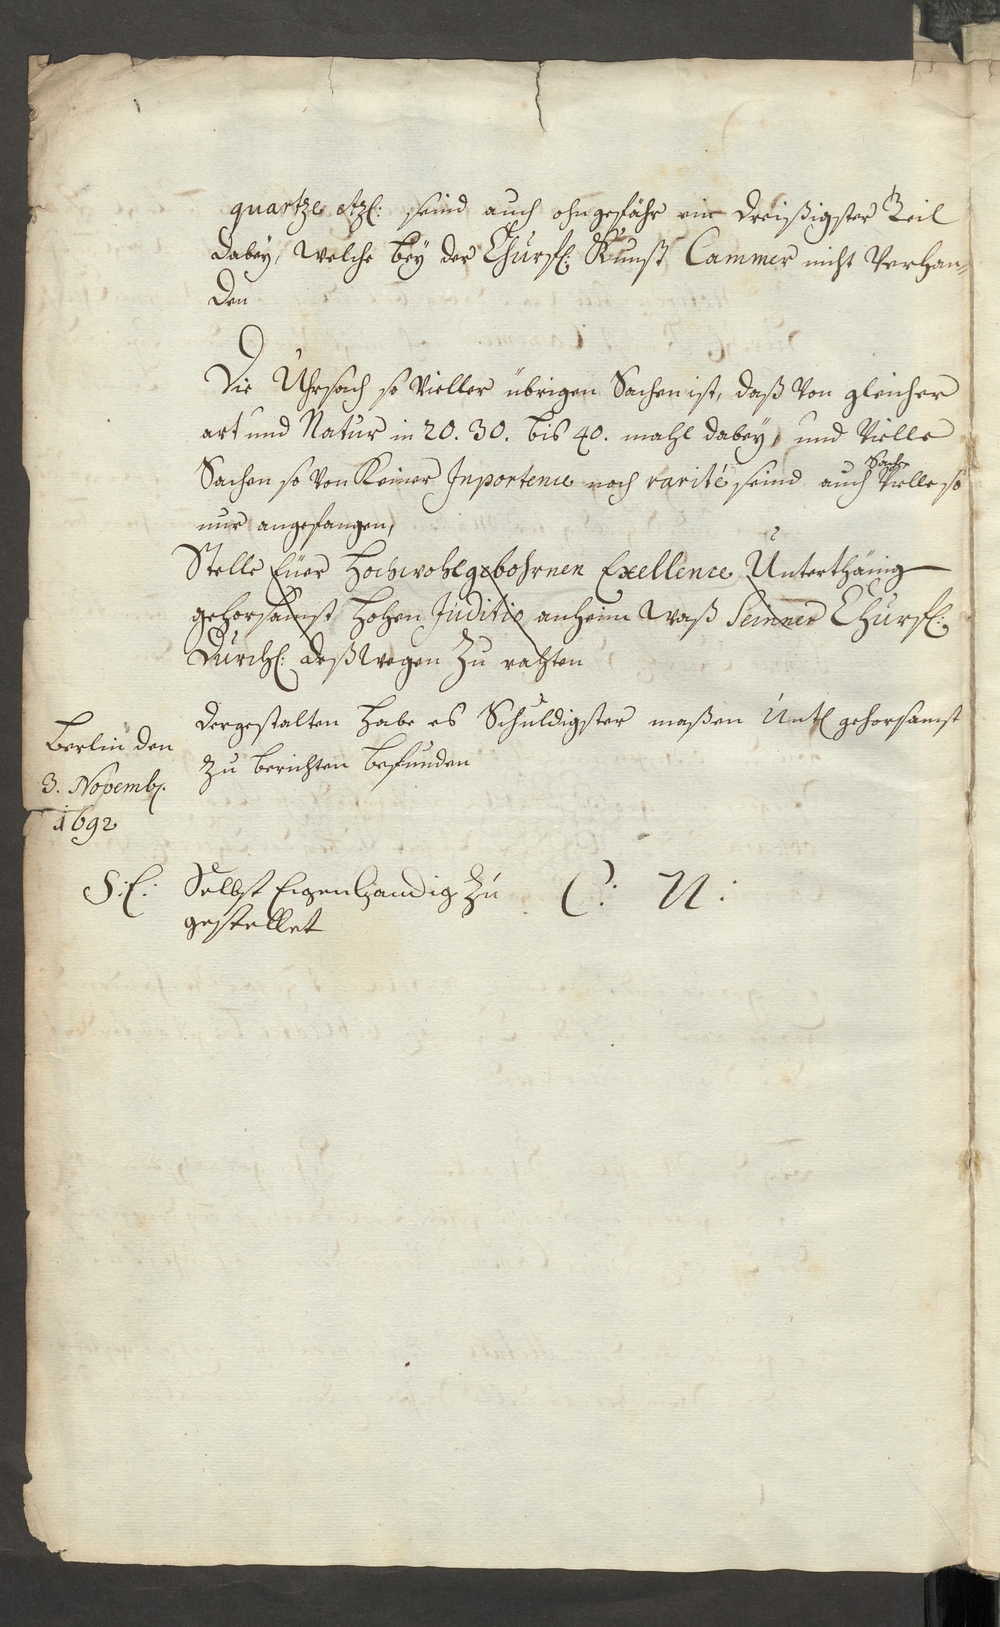 quartze etc: seind auch ohngefähr ein dreißigster Teil
dabeÿ, welche beÿ der Churfl: Kunst Cammer nicht Verhan=
den
Die Uhrsach so Vieller übrigen Sachen ist, daß Von gleicher
art und Natur in 20. 30. biß 40. mahl dabeÿ, und Vielle
Sachen so Von Keiner Inportence noch rarité seind auch Vielle so
nur angefangen,
Stelle Euer Hochwohlgebohrnen Exellence Unterthänig
gehorsamst hohen Juditio anheim waß Seinner Churfl:
Durchl: deßwegen zu rahten
dergestalten habe es Schuldigster maßen Untl gehorsamst
zu berichten befunden
Berlin den
3. Novemb.
1692
S: E: Selbst Eigenhändig zu
gestellet
C: U: